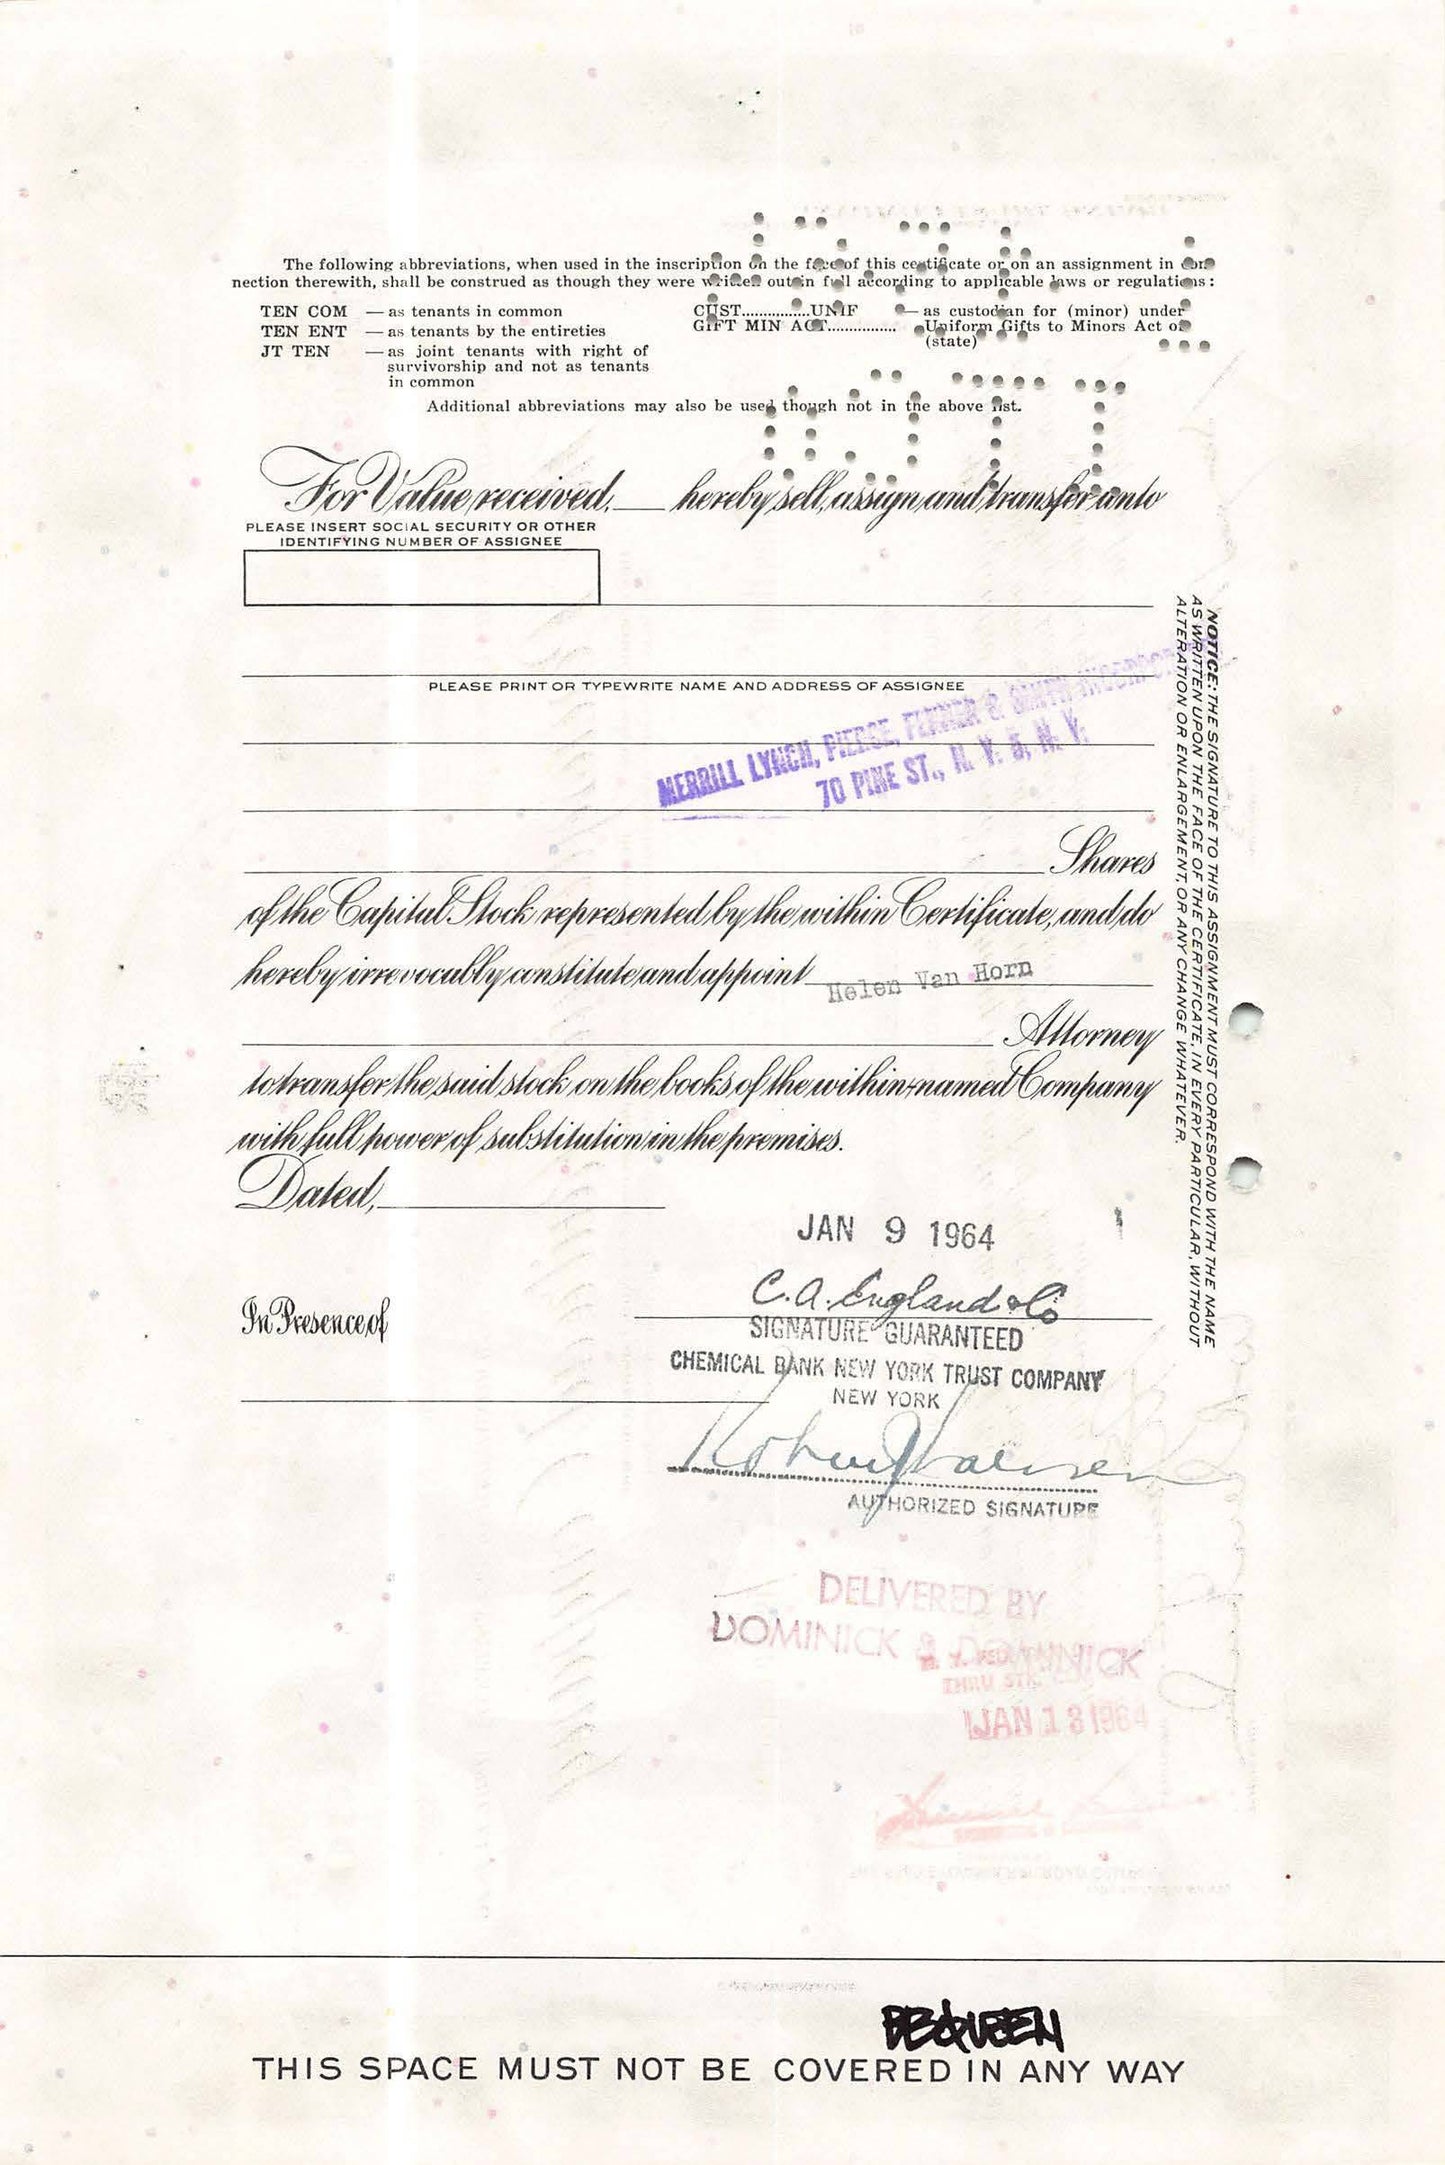 The following abbreviations, when used in the inscription on the face of this certificate or on an assignment in con-
nection therewith, shall be construed as though they were written out in full according to applicable laws or regulations:
TEN COM — as tenants in common
TEN ENT — as tenants by the entireties
JT TEN — as joint tenants with right of
survivorship and not as tenants
in common
CUST...............UNIF — as custodian for (minor) under
GIFT MIN ACT............... Uniform Gifts to Minors Act of
(state)
Additional abbreviations may also be used though not in the above list.
For Value received, ___ hereby sell, assign and transfer unto
PLEASE INSERT SOCIAL SECURITY OR OTHER
IDENTIFYING NUMBER OF ASSIGNEE
PLEASE PRINT OR TYPEWRITE NAME AND ADDRESS OF ASSIGNEE
MERRILL LYNCH, PIERCE, FENNER & SMITH
70 PINE ST., N. Y. 5, N. Y.
Shares
of the Capital Stock represented by the within Certificate, and do
hereby irrevocably constitute and appoint Helen Van Horn
Attorney
to transfer the said stock on the books of the within-named Company
with full power of substitution in the premises.
Dated,
JAN 9 1964
C.A. England & Co
In Presence of
SIGNATURE GUARANTEED
CHEMICAL BANK NEW YORK TRUST COMPANY
NEW YORK
AUTHORIZED SIGNATURE
DELIVERED BY
DOMINICK & DOMINICK
THRU STK.
JAN 13 1964
NOTICE: THE SIGNATURE TO THIS ASSIGNMENT MUST CORRESPOND WITH THE NAME
AS WRITTEN UPON THE FACE OF THE CERTIFICATE, IN EVERY PARTICULAR, WITHOUT
ALTERATION OR ENLARGEMENT, OR ANY CHANGE WHATEVER.
THIS SPACE MUST NOT BE COVERED IN ANY WAY